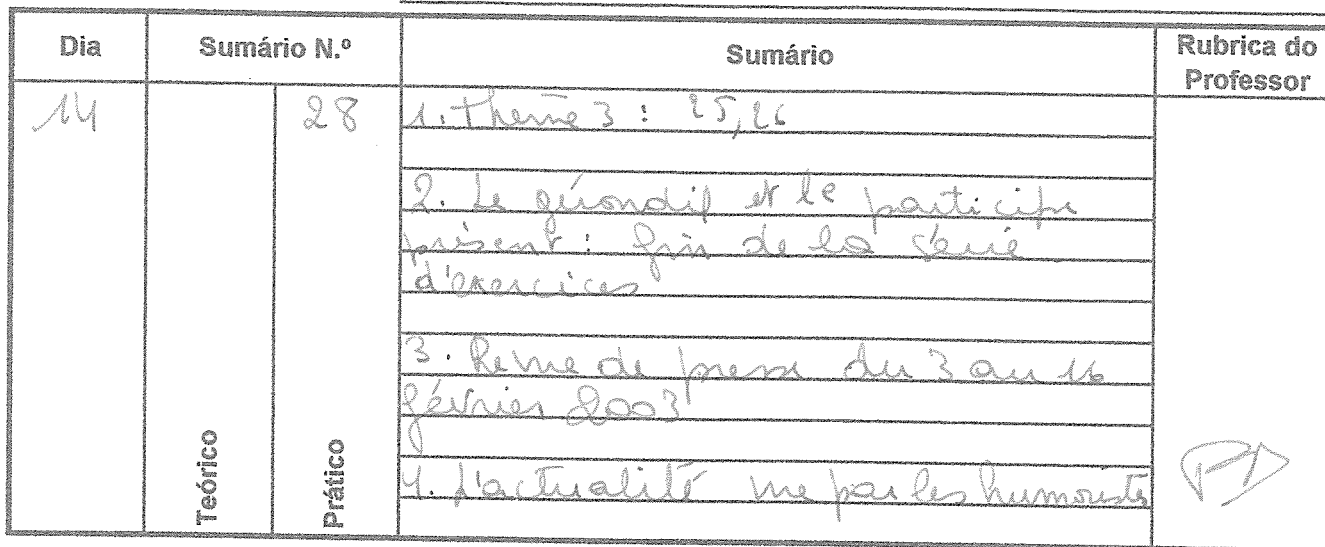 Dia Sumário N.º Sumário Rubrica do Professor
14 28 1. Thème 3 : 25, 26
2. Le gérondif et le participe
présent : fin de la série
d'exercices
3. Revue de presse du 3 au 16
février 2003
4. L'actualité vue par les humoristes
Teórico Prático